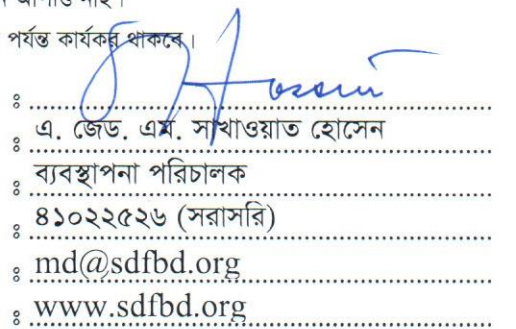 পর্যন্ত কার্যকর থাকবে।
ঃ Hossain
ঃ এ. জেড. এম. সাখাওয়াত হোসেন
ঃ ব্যবস্থাপনা পরিচালক
ঃ ৪১০২২৫২৬ (সরাসরি)
ঃ md@sdfbd.org
ঃ www.sdfbd.org